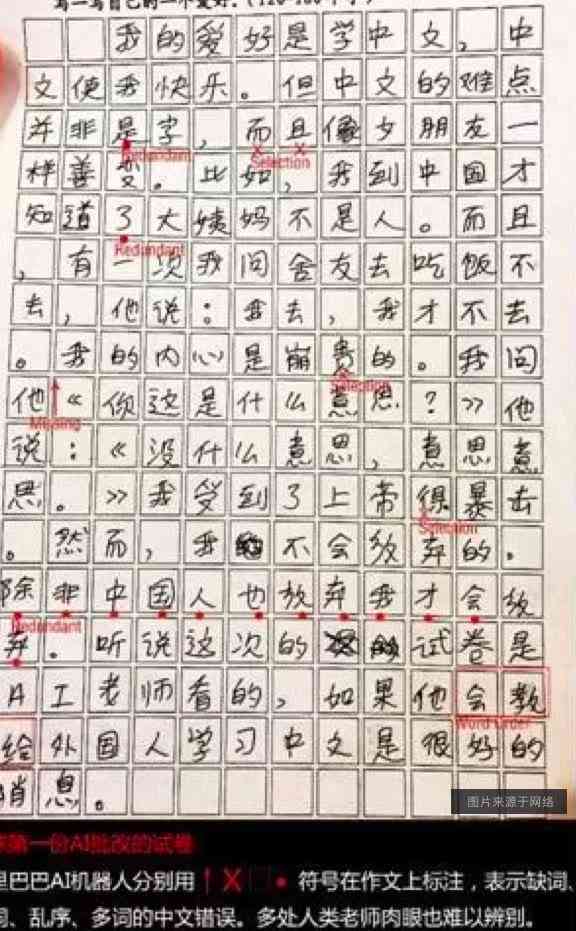 我的爱好是学中文，中
文使我快乐。但中文的难点
并非是字，而且像女朋友一
Redundant Selection
样善变。比如，我到中国才
知道了大姨妈不是人。而且
Redundant
，有一次我问舍友去吃饭不
去，他说：我去，我才不去
。我的内心是崩贵的。我问
Selection
他《你这是什么意思？》他
Missing
说：《没什么意思，意思意
思。》我受到了上帝得暴击
Selection
。然而，我不会放弃的。
除非中国人也放弃我才会放
Redundant
弃。听说这次的试卷是
AI老师看的，如果他会教
Word Order
给外国人学习中文是很好的
消息。
图片来源于网络
第一份AI批改的试卷
里巴巴AI机器人分别用↑X□● 符号在作文上标注，表示缺词、
词、乱序、多词的中文错误。多处人类老师肉眼也难以辨别。